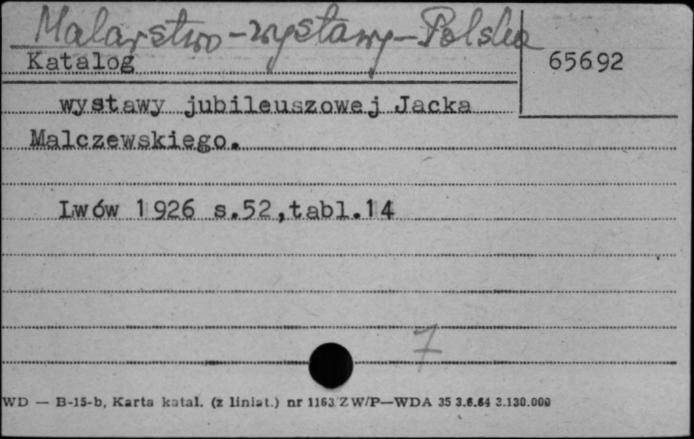 Malarstwo - wystawy - Polska
Katalog
65692
wystawy jubileuszowej Jacka
Malczewskiego.
Lwów 1926 s.52,tabl.14
7
WD — B-15-b, Karta katal. (z liniat.) nr 1163 ZW/P—WDA 35 3.6.64 3.130.000